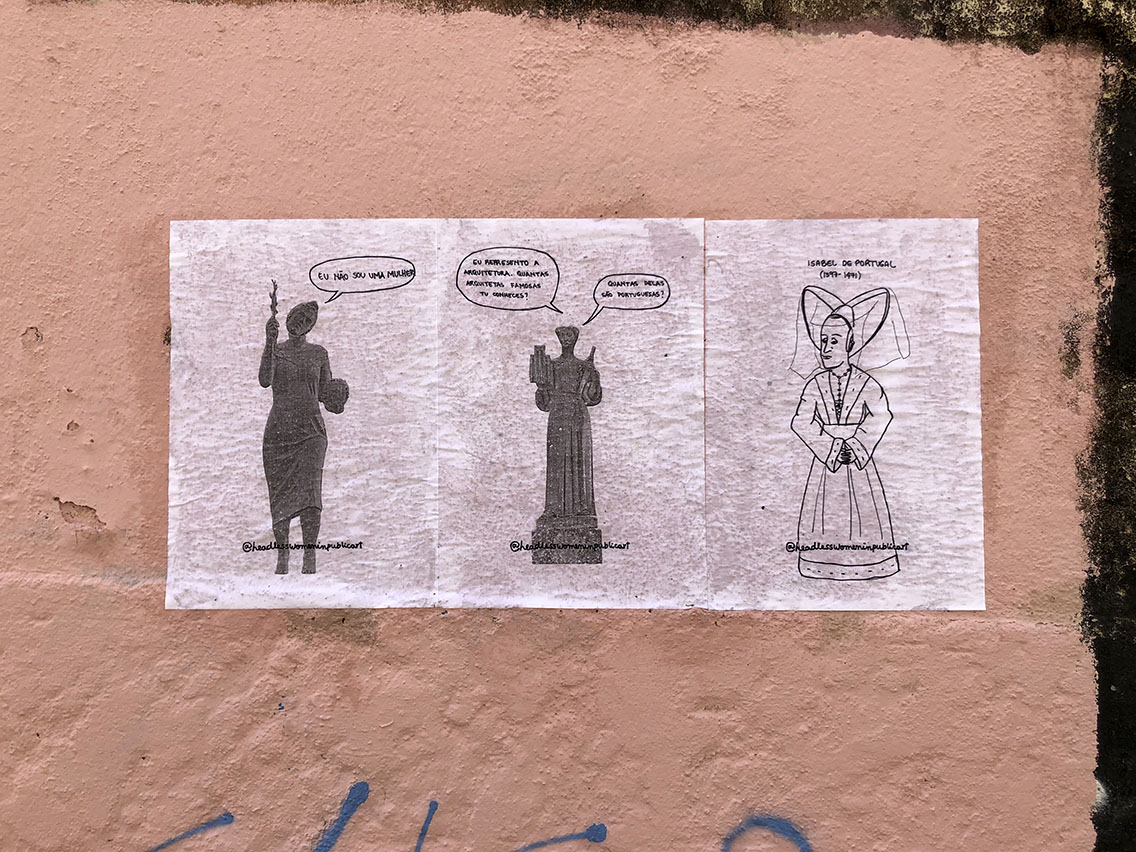 EU NÃO SOU UMA MULHER
@headlesswomeninpublicart
EU REPRESENTO A
ARQUITETURA. QUANTAS
ARQUITETAS FAMOSAS
TU CONHECES?
QUANTAS DELAS
SÃO PORTUGUESAS?
@headlesswomeninpublicart
ISABEL DE PORTUGAL
(1397-1471)
@headlesswomeninpublicart